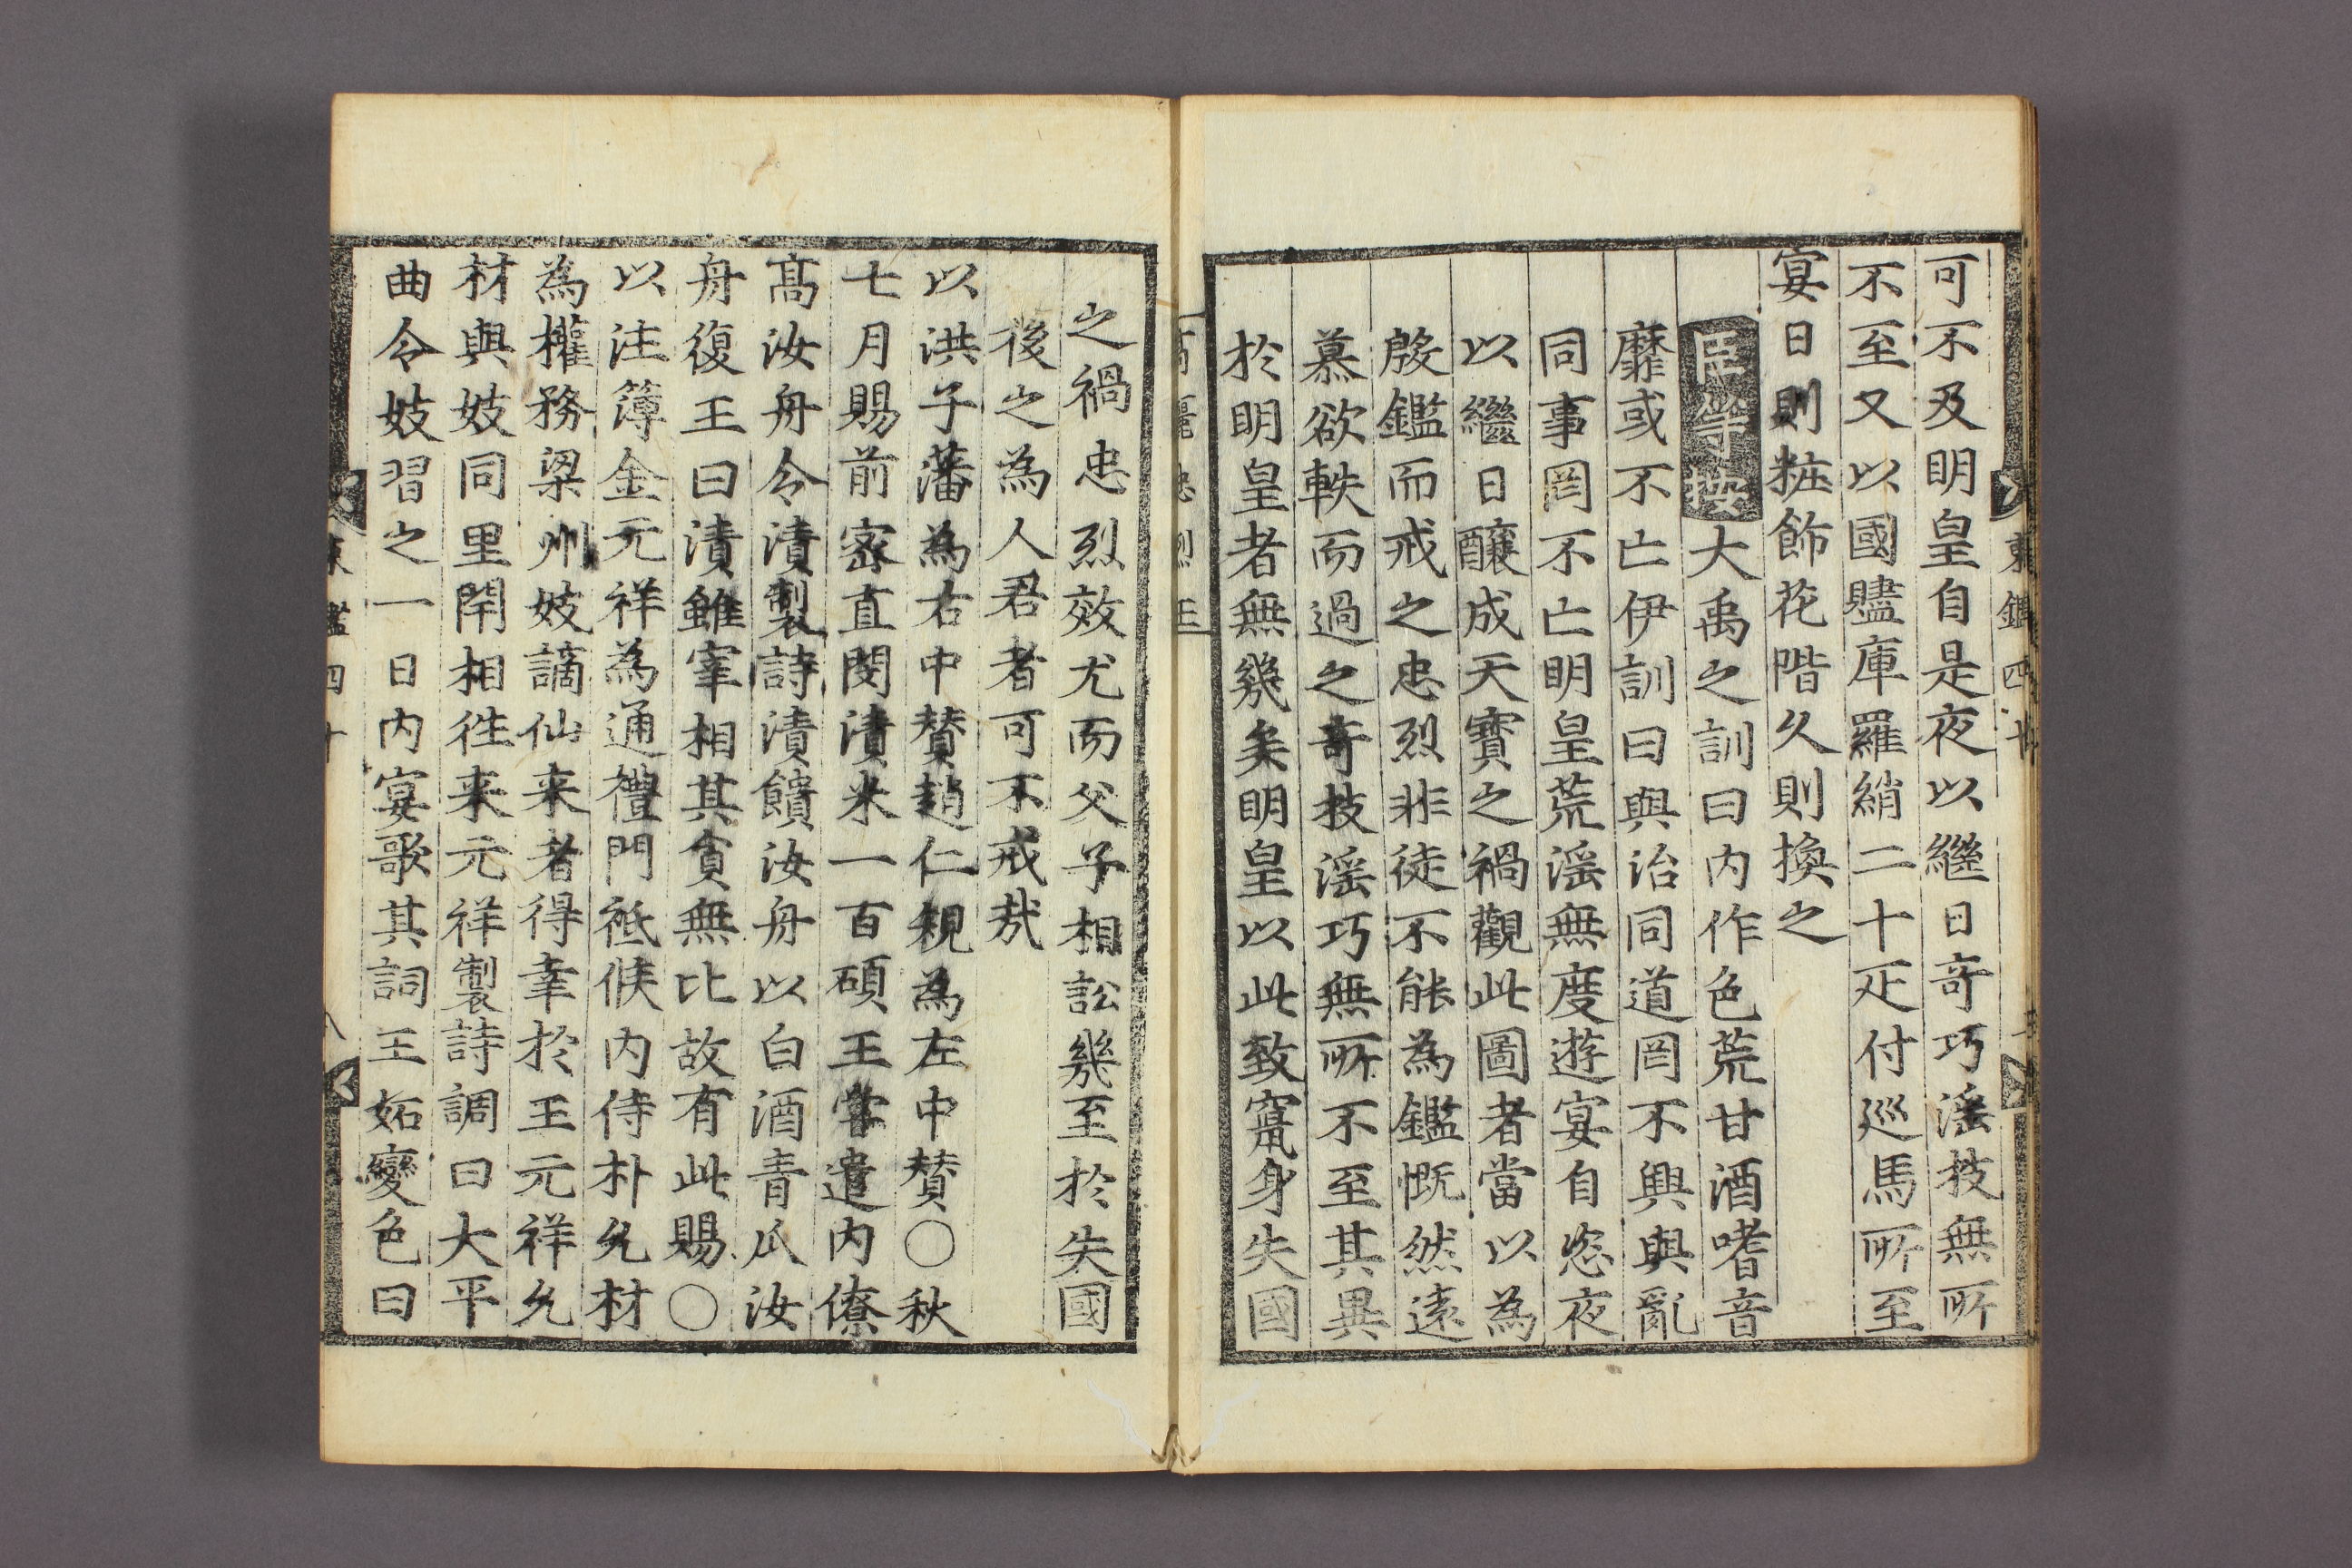 可不及明皇自是夜以繼日奇巧淫技無所
不至又以國贐庫羅綃二十疋付巡馬所至
宴日則粧飾花階久則換之
臣等按大禹之訓曰内作色荒甘酒嗜音
靡或不亡伊訓曰與治同道罔不興與亂
同事罔不亡明皇荒淫無度遊宴自恣夜
以繼日釀成天寶之禍觀此圖者當以為
殷鑑而戒之忠烈非徒不能為鑑慨然遠
慕欲軼而過之竒技淫巧無所不至其異
於明皇者無幾矣明皇以此致竄身失國
之禍忠烈效尤而父子相訟幾至於失國
後之為人君者可不戒哉
以洪子藩為右中賛趙仁規為左中賛○秋
七月賜前宻直閔漬米一百碩王嘗遣内僚
髙汝舟令漬製詩漬饋汝舟以白酒青瓜汝
舟復王曰漬雖宰相其貪無比故有此賜○
以注簿金元祥為通禮門祗候内侍朴允材
為權務梁州妓謫仙来者得幸於王元祥允
材與妓同里閈相徃来元祥製詩調曰大平
曲令妓習之一日内宴歌其詞王妬變色曰
東鑑四十
東鑑四十
八